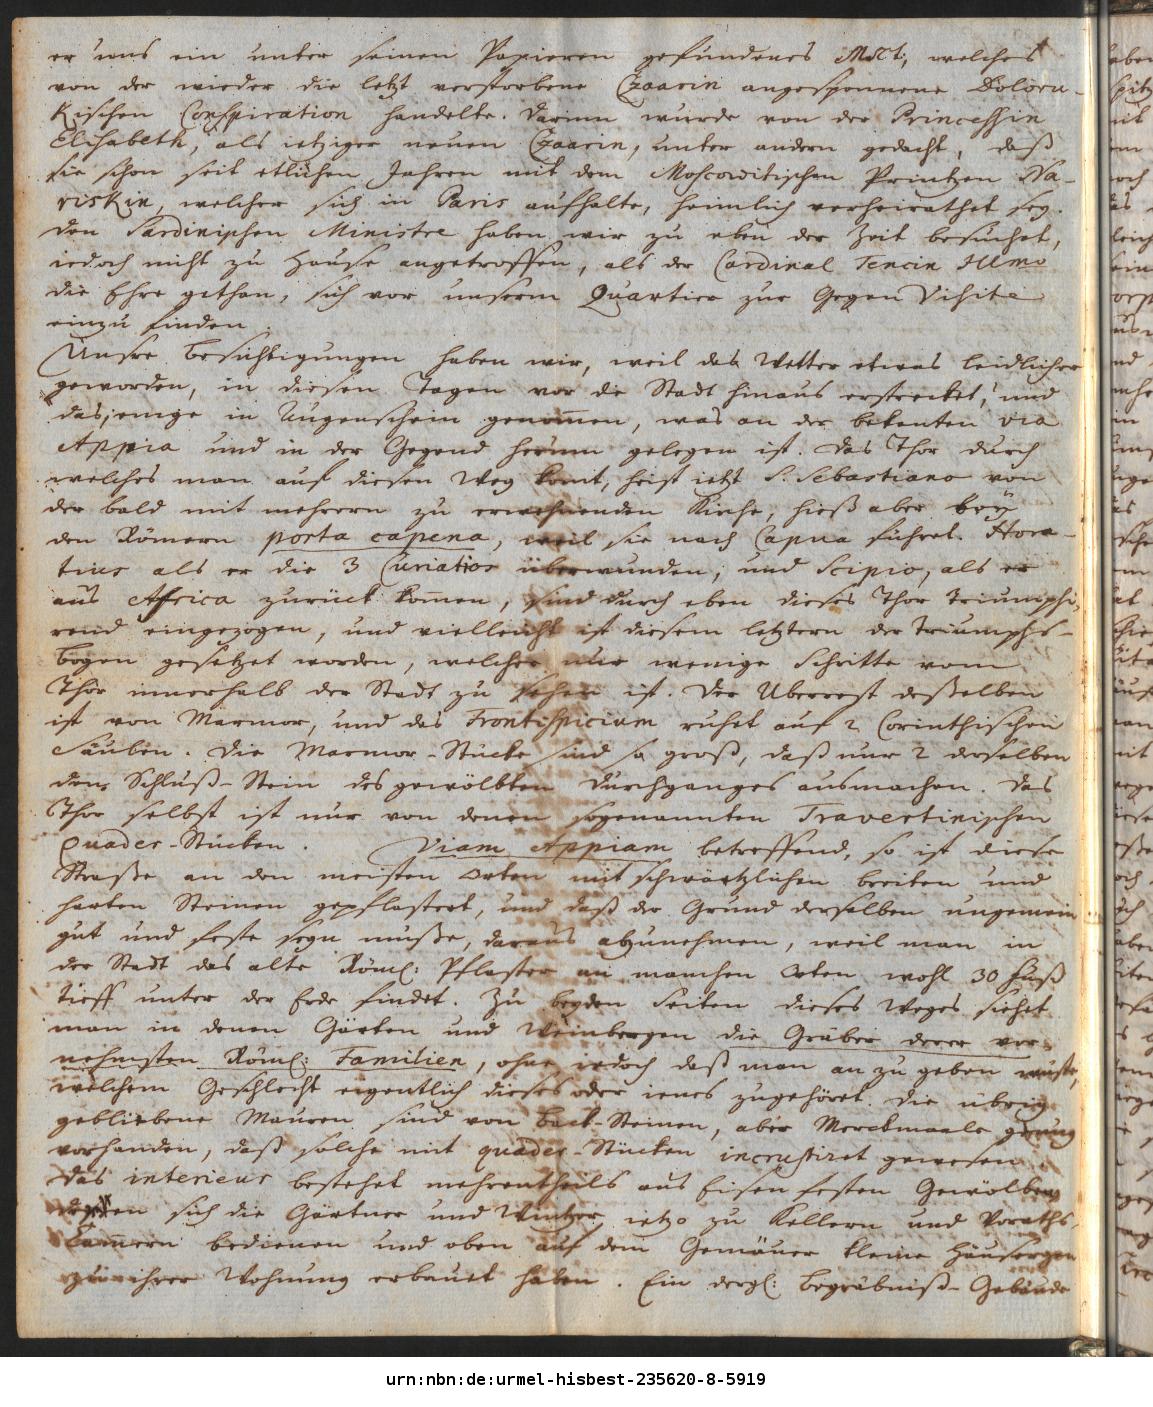 er uns ein unter seinen Papieren gefundenes Msct:, welches
von der wieder die letzt verstorbene Czaarin angesponnene Doloru-
Kischen Conspiration handelte. Darinn wurde von der Princessin
Elisabeth, als ietziger neuen Czaarin, unter andern gedacht, daß
sie schon seit etlichen Jahren mit dem Moscowitischen Printzen Na-
riskin, welcher sich in Paris aufhalte, heimlich verheirathet sey.
Den Sardinischen Ministre haben wir zu eben der Zeit besuchet,
iedoch nicht zu Hause angetroffen, als der Cardinal Tencin Illmo
die Ehre gethan, sich vor unserm Quartier zur Gegen Visite
einzu finden.
Unsre Besichtigungen haben wir, weil das Wetter etwas leidlicher
geworden, in diesen Tagen vor die Stadt hinaus erstrecket, und
dasjenige in Augenschein genom̄en, was an der bekanten via
Appia und in der Gegend herum gelegen ist. Das Thor durch
welches man auf diesen Weg komt, heist ietzt S. Sebastiano von
der bald mit mehrern zu erwehnenden Kirche, hieß aber bey
den Römern porta capena, weil sie nach Capua führet. Hora-
tius als er die 3 Curiatios überwunden, und Scipio, als er
aus Africa zurück kom̄en, sind durch eben dieses Thor triumphi-
rend eingezogen, und vielleicht ist diesem letztern der Triumphs-
bogen gesetzet worden, welcher nur wenige Schritte vom
Thor innerhalb der Stadt zu sehen ist. Der Uberrest deßelben
ist von Marmor, und das Frontispicium ruhet auf 2 Corinthischen
Säulen. Die Marmor-Stücke sind so groß, daß nur 2 derselben
den Schluß-Stein des gewölbten Durchganges ausmachen. Das
Thor selbst ist nur von denen sogenannten Travertinischen
Quader-Stücken. Viam Appiam betreffend, so ist diese
Straße an den meisten Orten mit schwärtzlichen breiten und
harten Steinen gepflastert, und daß der Grund derselben ungemein
gut und feste seyn muße, daraus abzunehmen, weil man in
der Stadt das alte Röml: Pflaster an manchen Orten wohl 30 Fuß
tieff unter der Erde findet. Zu beyden Seiten dieses Weges siehet
man in denen Gärten und Weinbergen die Gräber derer vor-
nehmsten Röml: Familien, ohne iedoch daß man an zu geben wuste,
welchem Geschlecht eigentlich dieses oder ienes zugehöret. Die übrig
gebliebene Mauren sind von Back-Steinen, aber Merckmaale genung
vorhanden, daß solche mit quader-Stücken incrustiret gewesen.
Das interieur bestehet mehrentheils aus Eisen festen Gewölben
deren sich die Gärtner und Wintzer ietzo zu Kellern und Voraths-
Kam̄ern bedienen und oben auf dem Gemäuer kleine Häusergen
zu ihrer Wohnung erbauet haben. Ein dergl: Begräbniß-Gebäude
urn:nbn:de:urmel-hisbest-235620-8-5919